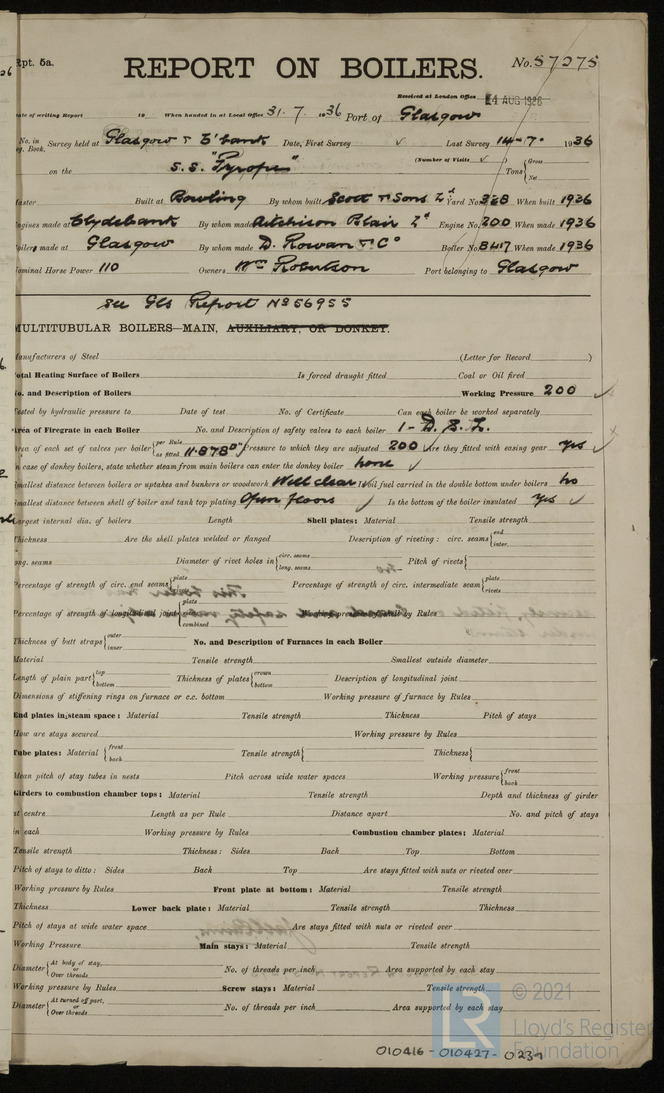 Rpt. 5a.
REPORT ON BOILERS.
No. 57275
Received at London Office 4 AUG 1936
Date of writing Report 19 When handed in at Local Office 31.7.1936 Port of Glasgow
No. in Reg. Book. Survey held at Glasgow & C'bank Date, First Survey Last Survey 14-7-1936
on the s.s. "Pyrope" (Number of Visits ) Tons { Gross Net
Master Built at Bowling By whom built Scott & Sons Ld Yard No. 328 When built 1936
Engines made at Clydebank By whom made Aitchison Blair Ld Engine No. 200 When made 1936
Boilers made at Glasgow By whom made D. Rowan & Co Boiler No. B417 When made 1936
Nominal Horse Power 110 Owners Wm Robertson Port belonging to Glasgow
See Gls Report No 56955
MULTITUBULAR BOILERS—MAIN, AUXILIARY, OR DONKEY.
Manufacturers of Steel (Letter for Record )
Total Heating Surface of Boilers Is forced draught fitted Coal or Oil fired
No. and Description of Boilers Working Pressure 200
Tested by hydraulic pressure to Date of test No. of Certificate Can each boiler be worked separately
Area of Firegrate in each Boiler No. and Description of safety valves to each boiler 1 - D. S. L.
Area of each set of valves per boiler { per Rule as fitted 11.878□" Pressure to which they are adjusted 200 Are they fitted with easing gear yes
In case of donkey boilers, state whether steam from main boilers can enter the donkey boiler none
Smallest distance between boilers or uptakes and bunkers or woodwork Well clear Is oil fuel carried in the double bottom under boilers no
Smallest distance between shell of boiler and tank top plating Open floors Is the bottom of the boiler insulated yes
Largest internal dia. of boilers Length Shell plates: Material Tensile strength
Thickness Are the shell plates welded or flanged Description of riveting: circ. seams { end inter.
long. seams Diameter of rivet holes in { circ. seams long. seams Pitch of rivets {
Percentage of strength of circ. end seams { plate rivets Percentage of strength of circ. intermediate seam { plate rivets
Percentage of strength of longitudinal joint { plate rivets combined Working pressure of shell by Rules
Thickness of butt straps { outer inner No. and Description of Furnaces in each Boiler
Material Tensile strength Smallest outside diameter
Length of plain part { top bottom Thickness of plates { crown bottom Description of longitudinal joint
Dimensions of stiffening rings on furnace or c.c. bottom Working pressure of furnace by Rules
End plates in steam space: Material Tensile strength Thickness Pitch of stays
How are stays secured Working pressure by Rules
Tube plates: Material { front back Tensile strength { Thickness {
Mean pitch of stay tubes in nests Pitch across wide water spaces Working pressure { front back
Girders to combustion chamber tops: Material Tensile strength Depth and thickness of girder
at centre Length as per Rule Distance apart No. and pitch of stays
in each Working pressure by Rules Combustion chamber plates: Material
Tensile strength Thickness: Sides Back Top Bottom
Pitch of stays to ditto: Sides Back Top Are stays fitted with nuts or riveted over
Working pressure by Rules Front plate at bottom: Material Tensile strength
Thickness Lower back plate: Material Tensile strength Thickness
Pitch of stays at wide water space Are stays fitted with nuts or riveted over
Working Pressure Main stays: Material Tensile strength
Diameter { At body of stay, or Over threads No. of threads per inch Area supported by each stay
Working pressure by Rules Screw stays: Material Tensile strength
Diameter { At turned off part, or Over threads No. of threads per inch Area supported by each stay
LR
© 2021
Lloyd's Register
Foundation
010416-010427-0237